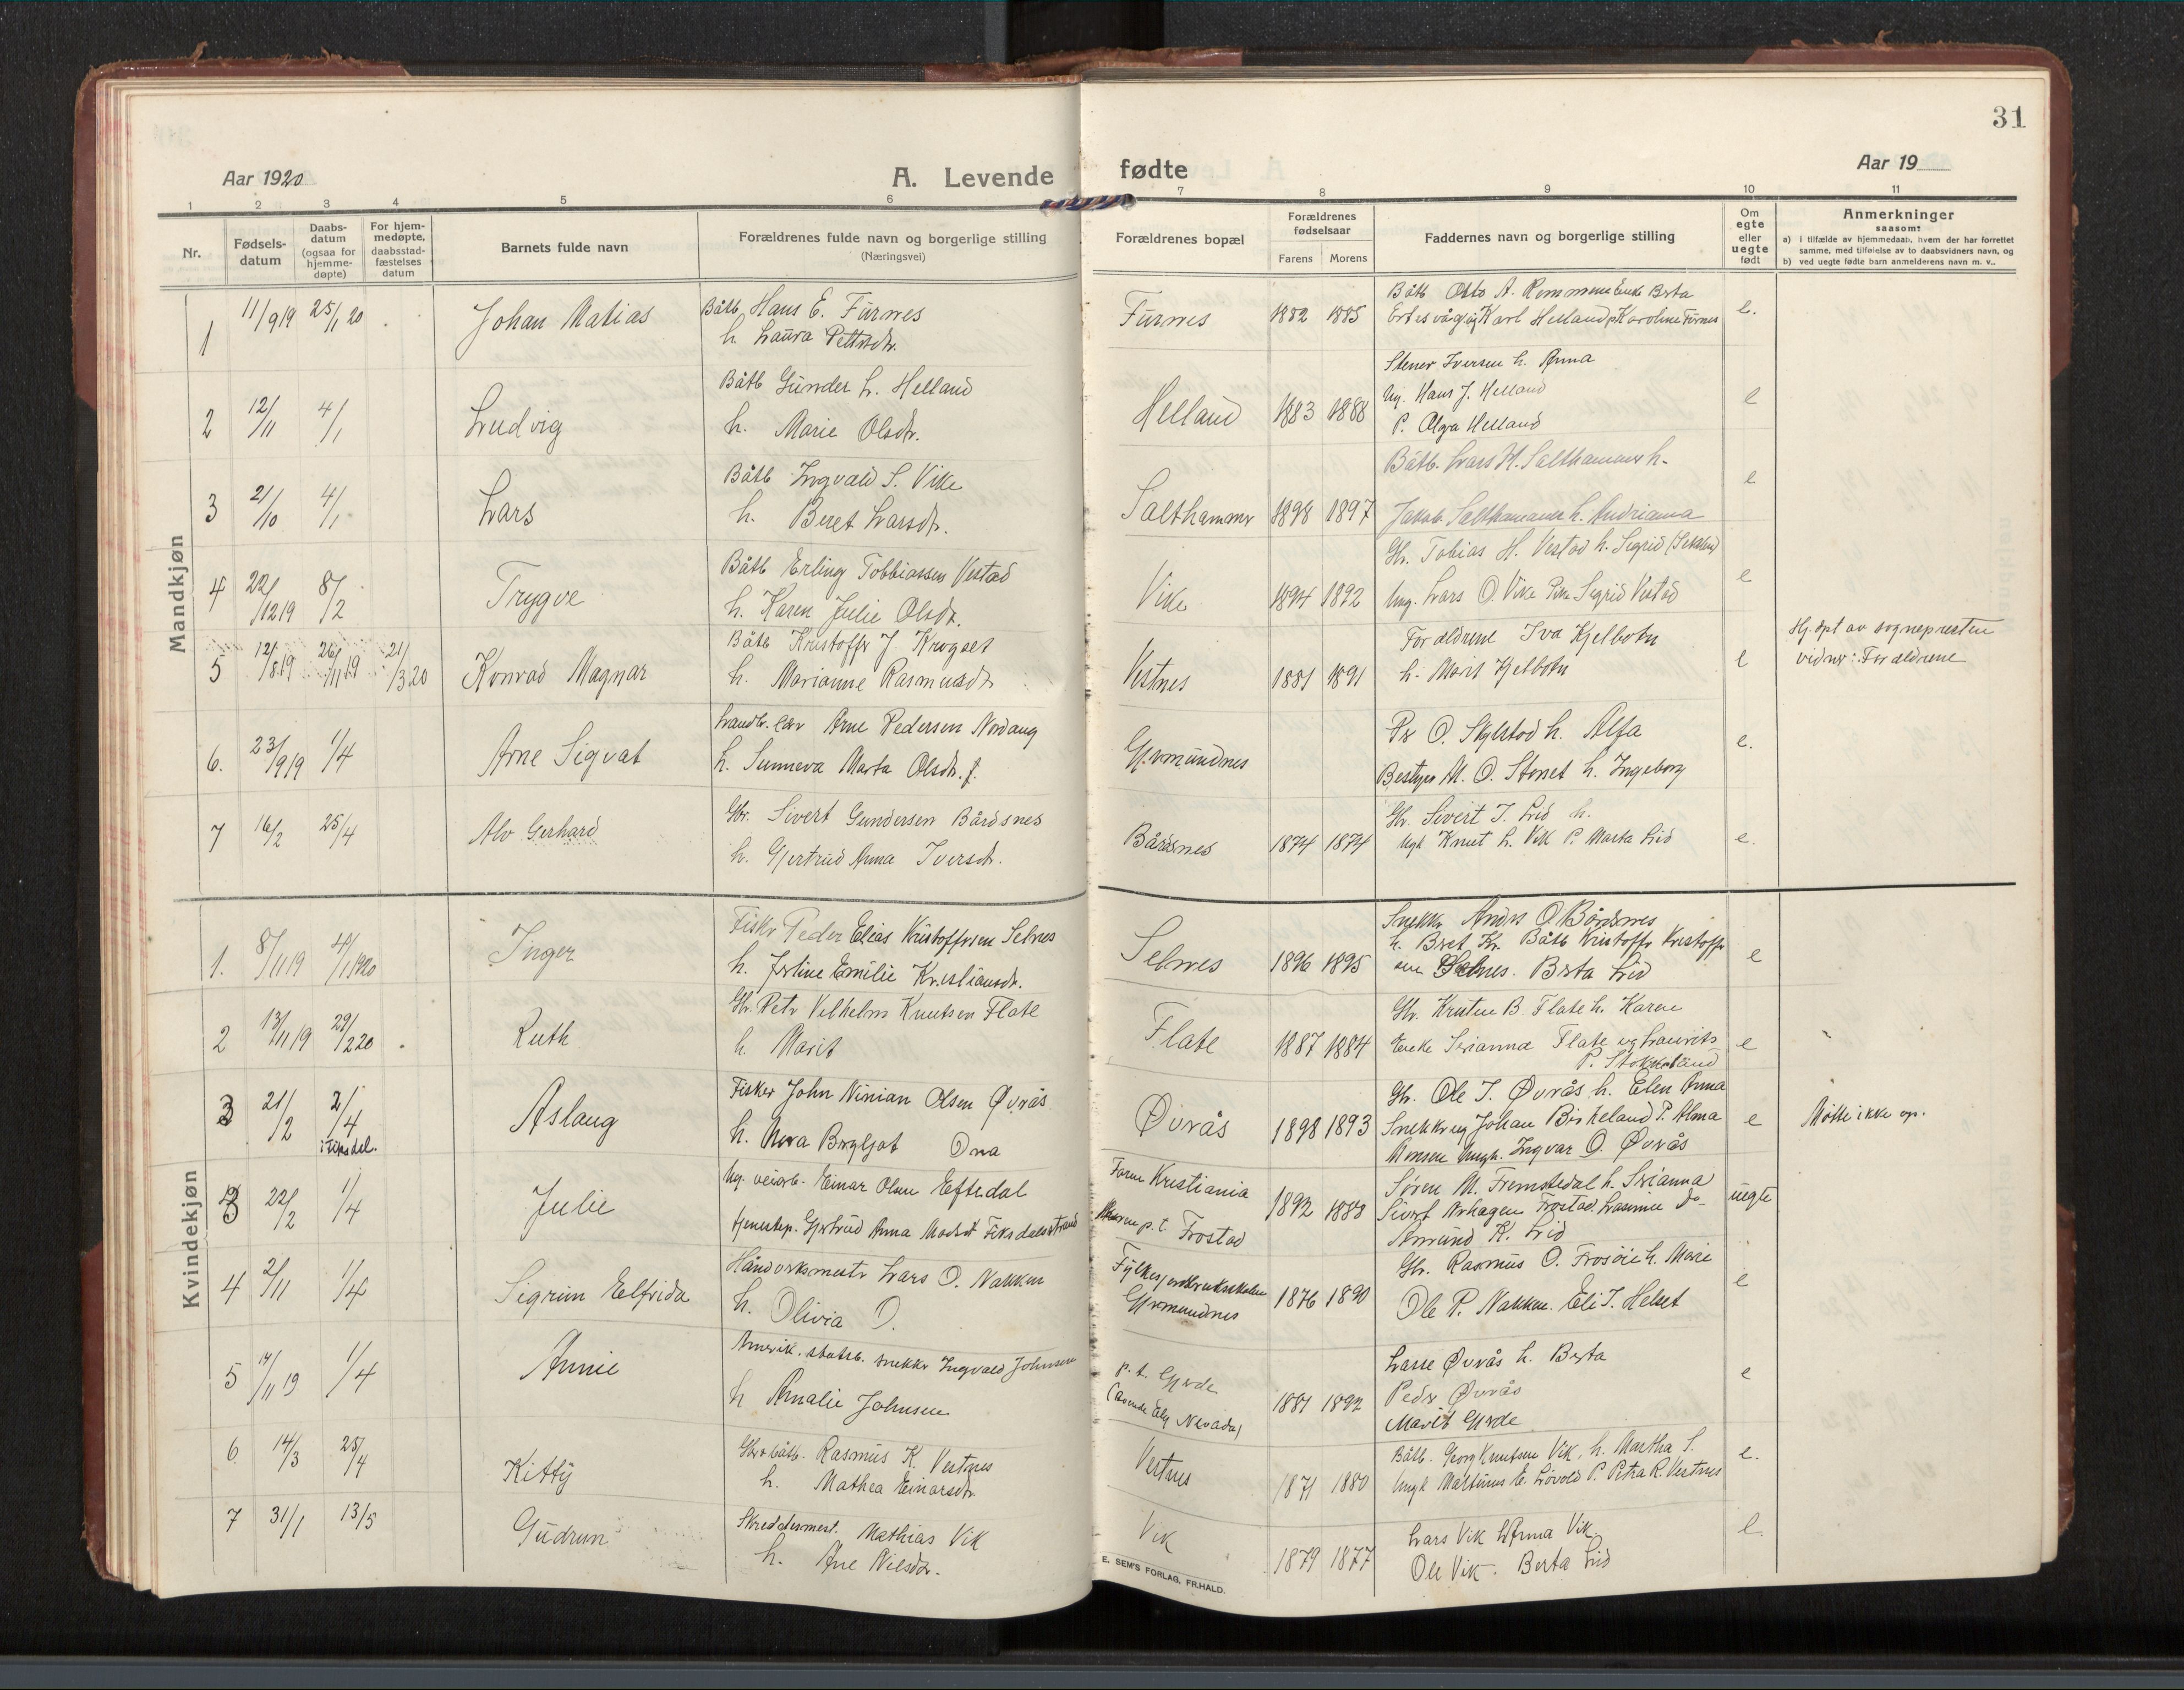 31
Aar 1920
A. Levende fødte
Aar 19
1 2 3 4 5 6 7 8 9 10 11
Nr.
Fødsels-
datum
Daabs-
datum
(ogsaa for
hjemme-
døpte)
For hjem-
medøpte,
daabsstad-
fæstelses
datum
Barnets fulde navn
Forældrenes fulde navn og borgerlige stilling
(Næringsvei)
Forældrenes bopæl
Forældrenes
fødselsaar
Farens Morens
Faddernes navn og borgerlige stilling
Om
egte
eller
uegte
født
Anmerkninger
saasom:
a) i tilfælde av hjemmedaab, hvem der har forrettet
samme, med tilføielse av to daabsvidners navn, og
b) ved uegte fødte barn anmelderens navn m. v..
Mandkjøn
1 11/9 19 25/1 20 Johan Matias Båtb. Hans E. Furnes Furnes 1882 1885 Båtb Otto A. Remmene Enke Berta e.
h. Laura Petersdtr. Karl Helland p Karoline Furnes
2 12/11 4/1 Ludvig Båtb Gunder L. Helland Helland 1883 1888 Stener Iversen h. Anna e
h. Marie Olsdtr. Ug. Hans J. Helland
P. Olga Helland
3 21/10 4/1 Lars Båtb Ingvald S. Vike Salthammer 1898 1897 Båtb. Lars H. Salthammer h. e
h. Beret Larsdtr. Jakob Salthammer h. Andriana
4 22/12 19 8/2 Trygve Båtb Erling Tobbiassen Vestad Vike 1894 1892 Gbr. Tobias H. Vestad h. Sigrid (Sekken) e
h. Karen Julie Olsdtr. Ung. Lars O. Vike Pike Sigrid Vestad
5 12/8 19 26/11 19 21/3 20 Konrad Magnar Båtb Kristoffer J. Krogset Vestnes 1881 1891 Forældrene Iva Kjelbotn e Hj. døpt av sognepresten
h. Marianne Rasmusdtr h. Marit Kjelbotn vidner: Forældrene
6. 23/9 19 1/4 Arne Sigvat Landb. lær Arne Pedersen Nordang Gjermundnes Pr O. Skylstad h. Alfa e.
h. Sunneva Marta Olsdtr. f. Bestyrer M. O. Stenet h. Ingeborg
7 16/2 25/4 Alv Gerhard Gbr. Sivert Gundersen Bårdsnes Bårdsnes 1874 1874 Gbr. Sivert I. Lid h. e.
h. Gjertrud Anna Iversdtr. Ugk Knut L. Vik P. Marta Lid
Kvindekjøn
1. 8/11 19 4/1 1920 Inger Fisker Peder Elias Kristoffersen Selnes Selnes 1896 1895 Snekker Anders O. Bårdsnes e
h. Jertine Emilie Kristiansdtr. h. Beret Kr. Båtb Kristoffer Kristoffer
sen Selnes. Berta Lid
2 13/11 19 29/2 20 Ruth Gbr. Peter Velhelm Knutsen Flate Flate 1887 1884 Gbr. Knuten B. Flate h. Karen e
h. Marit Enke Serianna Flate ug Laurits
P. Stokkeland
3 21/2 2/4 i Fiksdal. Aslaug Fisker John Ninian Olsen Øvrås Øvrås 1898 1893 Gbr. Ole I. Øvrås h. Elen Anna e Møtte ikke op.
h. Nora Bergljot Ona Snekker ug Johan Birkeland P. Alma
Monsen Ungk. Ingvar O. Øvrås
3 22/2 1/4 Julie Ug. veiarb. Einar Olsen Eftedal Faren Kristiania 1892 1888 Søren M. Fremstedal h. Serianna uegte
tjenestep. Gjertrud Anna Madsdt Fiksdalsstrand Moren p.t. Frostad Sivert Arhagen Frostad. Lasmine do
Semund K. Lid
4 2/11 1/4 Sigrun Elfrida Håndverksmester Lars O. Nakken Fylkesjordbruksskolen 1876 1890 Gbr. Rasmus O. Frosøie h. Marie e
h. Olivia O. Gjermundnes Ole P. Nakken. Eli I. Helset
5 14/11 19 1/4 Annie Amerik. statsb. snekker Ingvald Johnsen p.t. Gjerde 1881 1892 Lasse Øvrås h. Berta e
h Amalie Johnsen (boende Ely Nevada) Peder Øvrås
Marit Gjerde
6 14/3 25/4 Kitty Gbr & båtb. Rasmus K. Vestnes Vestnes 1871 1880 Båtb. Georg Knutsen Vik, h. Martha S. e.
h. Mathea Einarsdtr. Ungk Martinus E. Løvold P. Petra R. Vestnes
7 31/1 13/5 Gudrun Skreddermest. Mathias Vik Vik 1879 1877 Lars Vik h Anna Vik e.
h. Ane Nilsdtr. Ole Vik. Berta Lid
E. SEM'S FORLAG, FR.HALD.